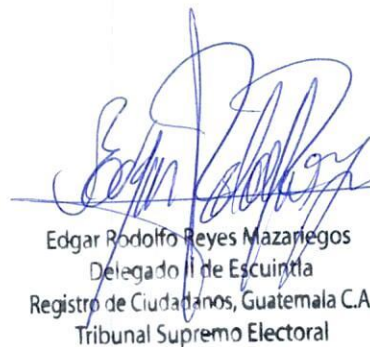 Edgar Rodolfo Reyes Mazariegos
Delegado II de Escuintla
Registro de Ciudadanos, Guatemala C.A
Tribunal Supremo Electoral